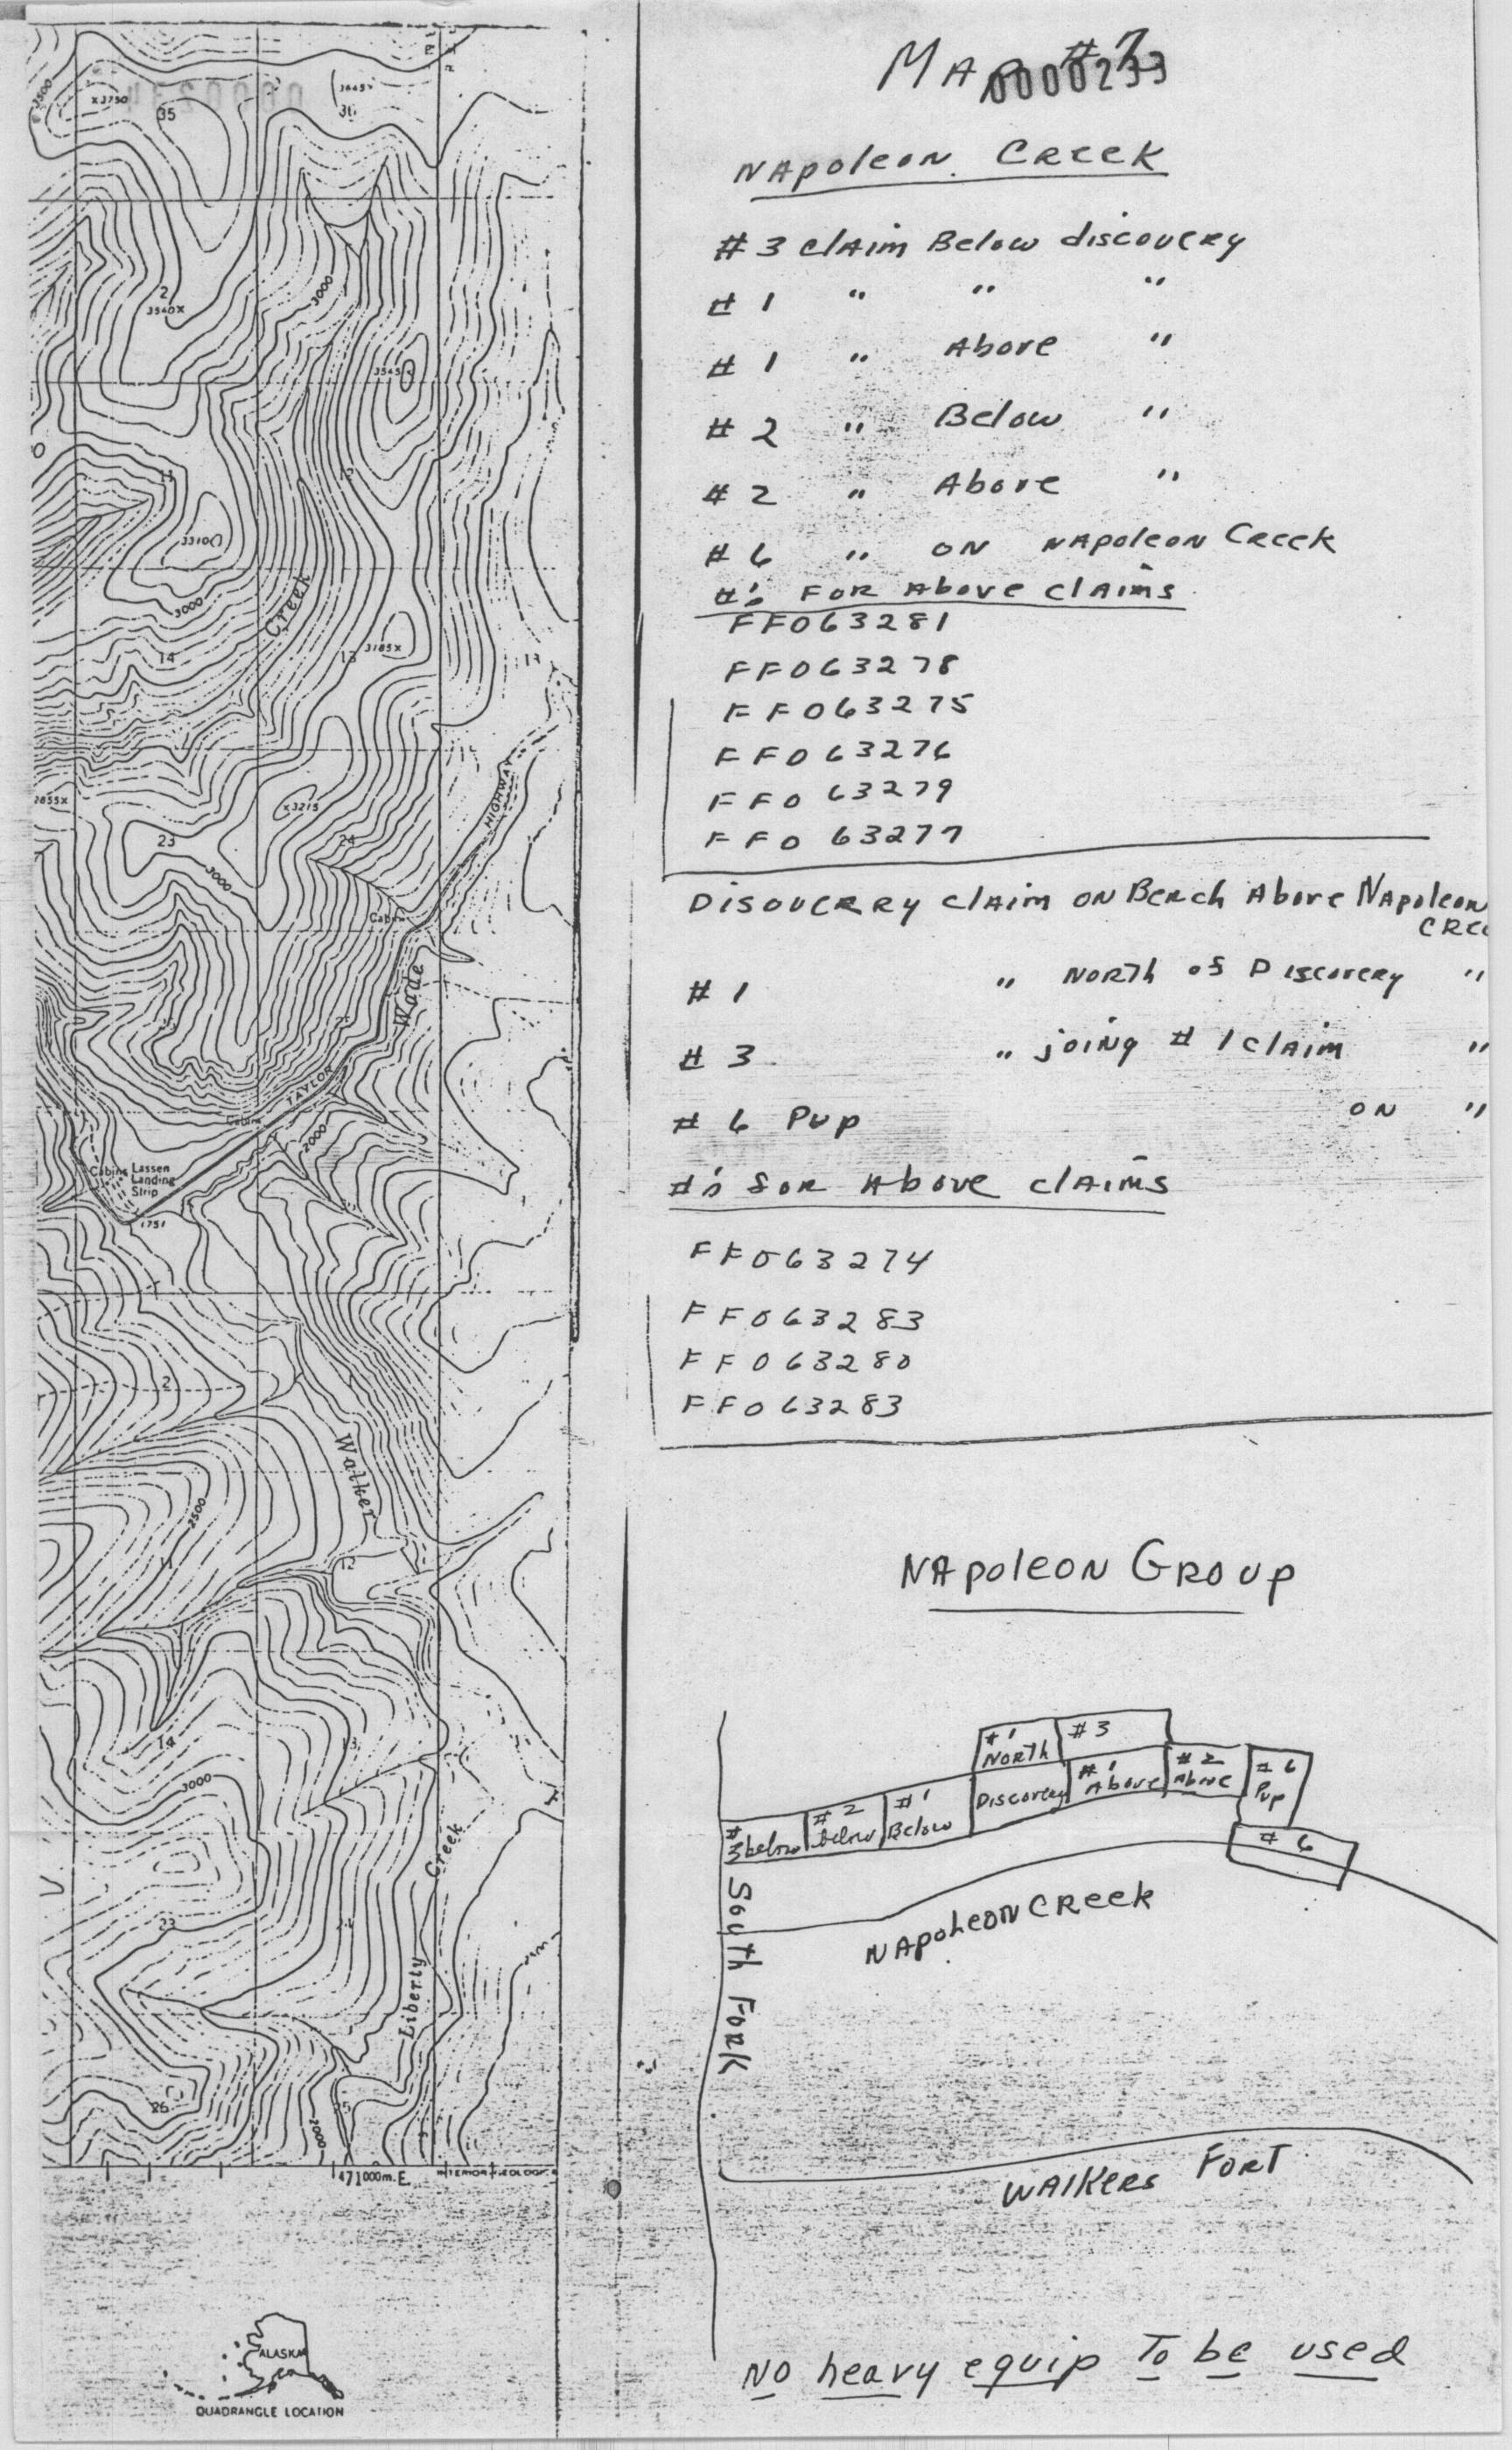 MAP #7
0000233
NApoleon Creek
# 3 clAim Below discovery
# 1 " " "
# 1 " Above "
# 2 " Below "
# 2 " Above "
# 6 " ON NApoleon Creek
#'s FOR Above clAims
FF063281
FF063278
FF063275
FF063276
FF063279
FF063277
DisovERRy clAim ON Bench Above NApoleon
CREE
# 1 " NORTH of Discovery "
# 3 " joing # 1 clAim "
# 6 Pup ON "
#'s for Above clAims
FF063274
FF063283
FF063280
FF063283
NApoleon GROUP
#1 North
#3
#3 below
#2 below
#1 Below
Discovery
#1 Above
#2 Above
#6 Pup
#6
NApoleon CReek
South Fork
WAlkers Fort
No heavy equip To be used
3500
x3750
35
36
2
3540x
3000
3545
11
12
3310
3000
Creek
14
13
3185x
13
2855x
x3215
23
24
3000
HIGHWAY
Cabin
Wade
25
TAYLOR
Cabin
2000
Cabins
Lassen
Landing
Strip
1751
2
Walker
2500
11
12
14
13
3000
Creek
23
24
Liberty
26
25
2000
471000m.E.
INTERIOR-GEOLOGICAL
ALASKA
QUADRANGLE LOCATION